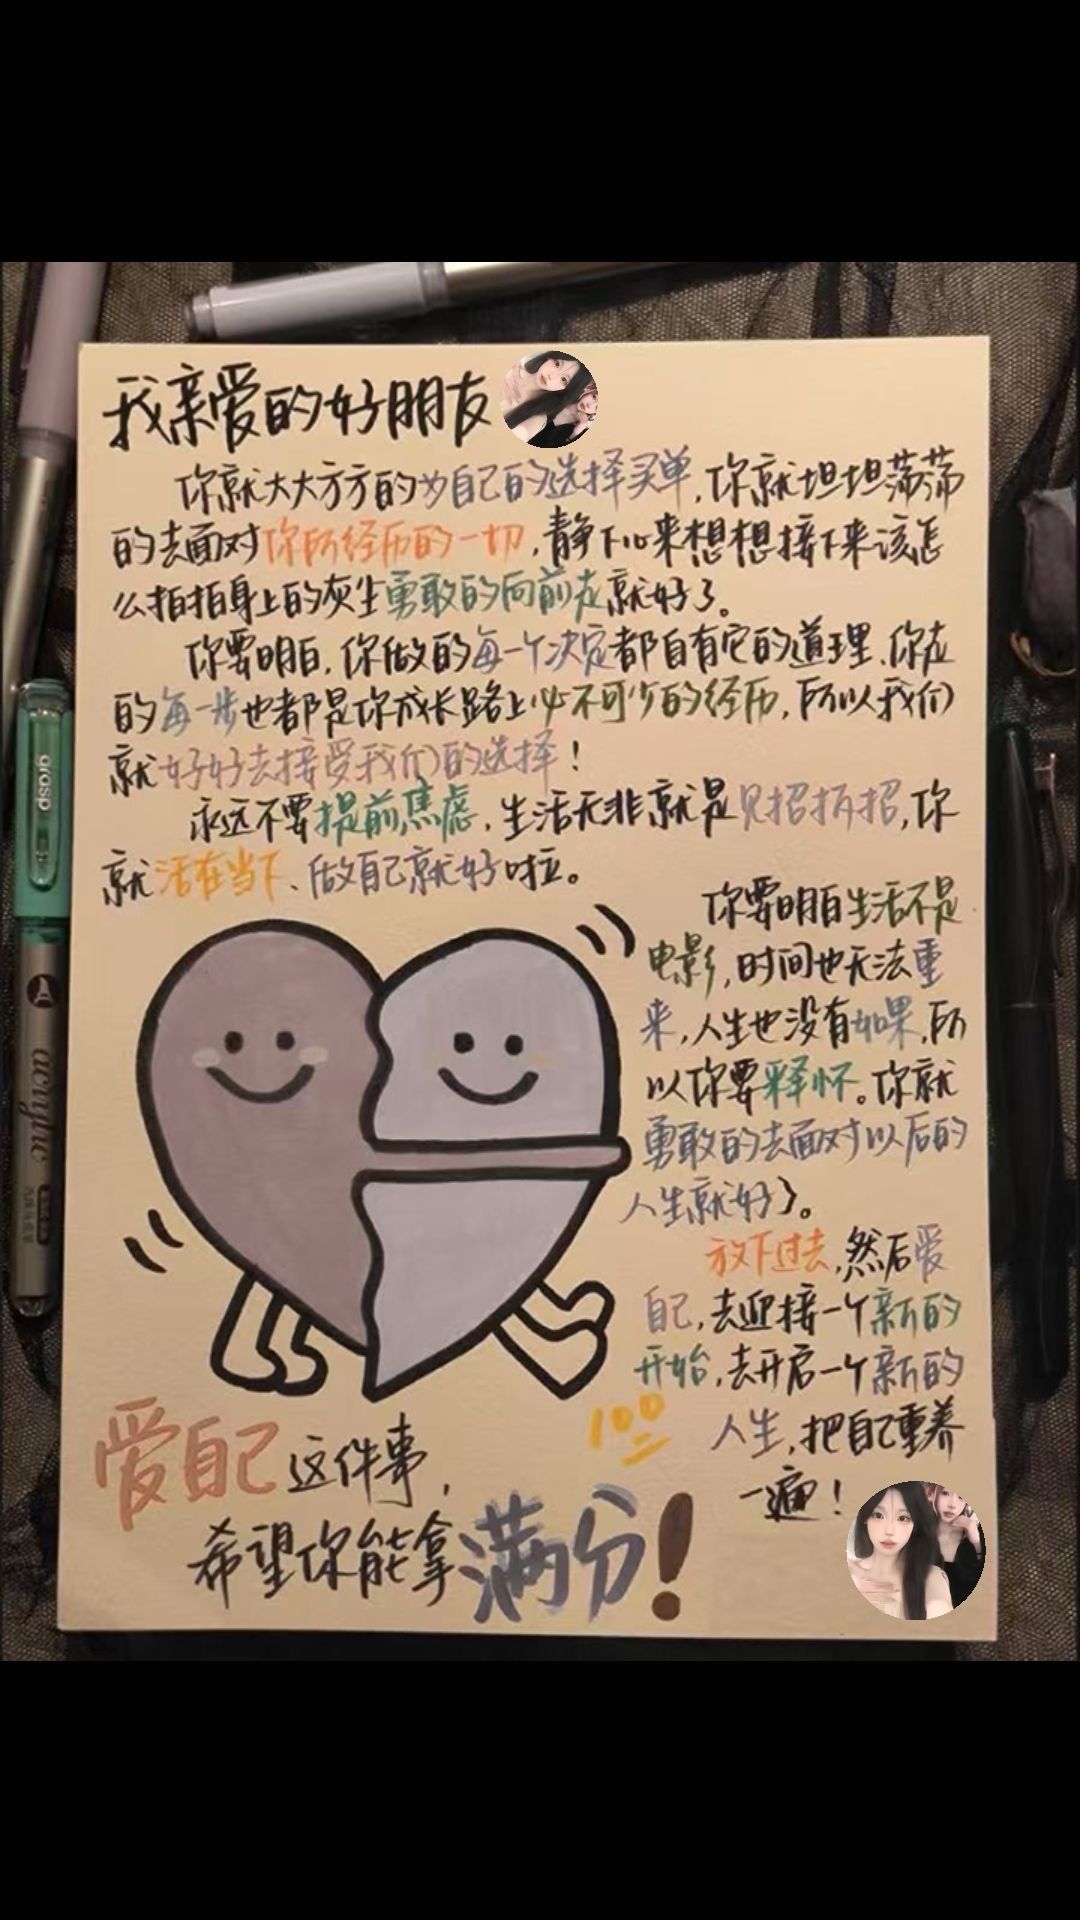 我亲爱的好朋友
你就大大方方的为自己的选择买单,你就坦坦荡荡
的去面对你所经历的一切,静下心来想想接下来该怎
么拍拍身上的灰尘勇敢的向前走就好了。
你要明白,你做的每一个决定都自有它的道理,你走
的每一步也都是你成长路上必不可少的经历,所以我们
就好好去接受我们的选择!
永远不要提前焦虑,生活无非就是见招拆招,你
就活在当下、做自己就好啦。
你要明白生活不是
电影,时间也无法重
来,人生也没有如果,所
以你要释怀。你就
勇敢的去面对以后的
人生就好了。
放下过去,然后爱
自己,去迎接一个新的
开始,去开启一个新的
人生,把自己重养
一遍!
100
爱自己这件事,
希望你能拿满分!
grasp
acrylic